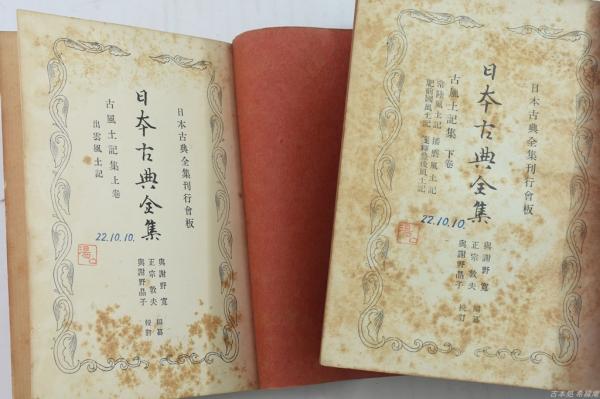 日本古典全集刊行會板
日本古典全集
古風土記集上卷
出雲風土記
與謝野寬
正宗敦夫
與謝野晶子
編纂
校訂
22.10.10.
日本古典全集刊行會板
日本古典全集
古風土記集 下卷
常陸風土記 播磨風土記
肥前國風土記
豐後風土記
與謝野寬
正宗敦夫
與謝野晶子
編纂
校訂
22.10.10.
古本処 希縁庵